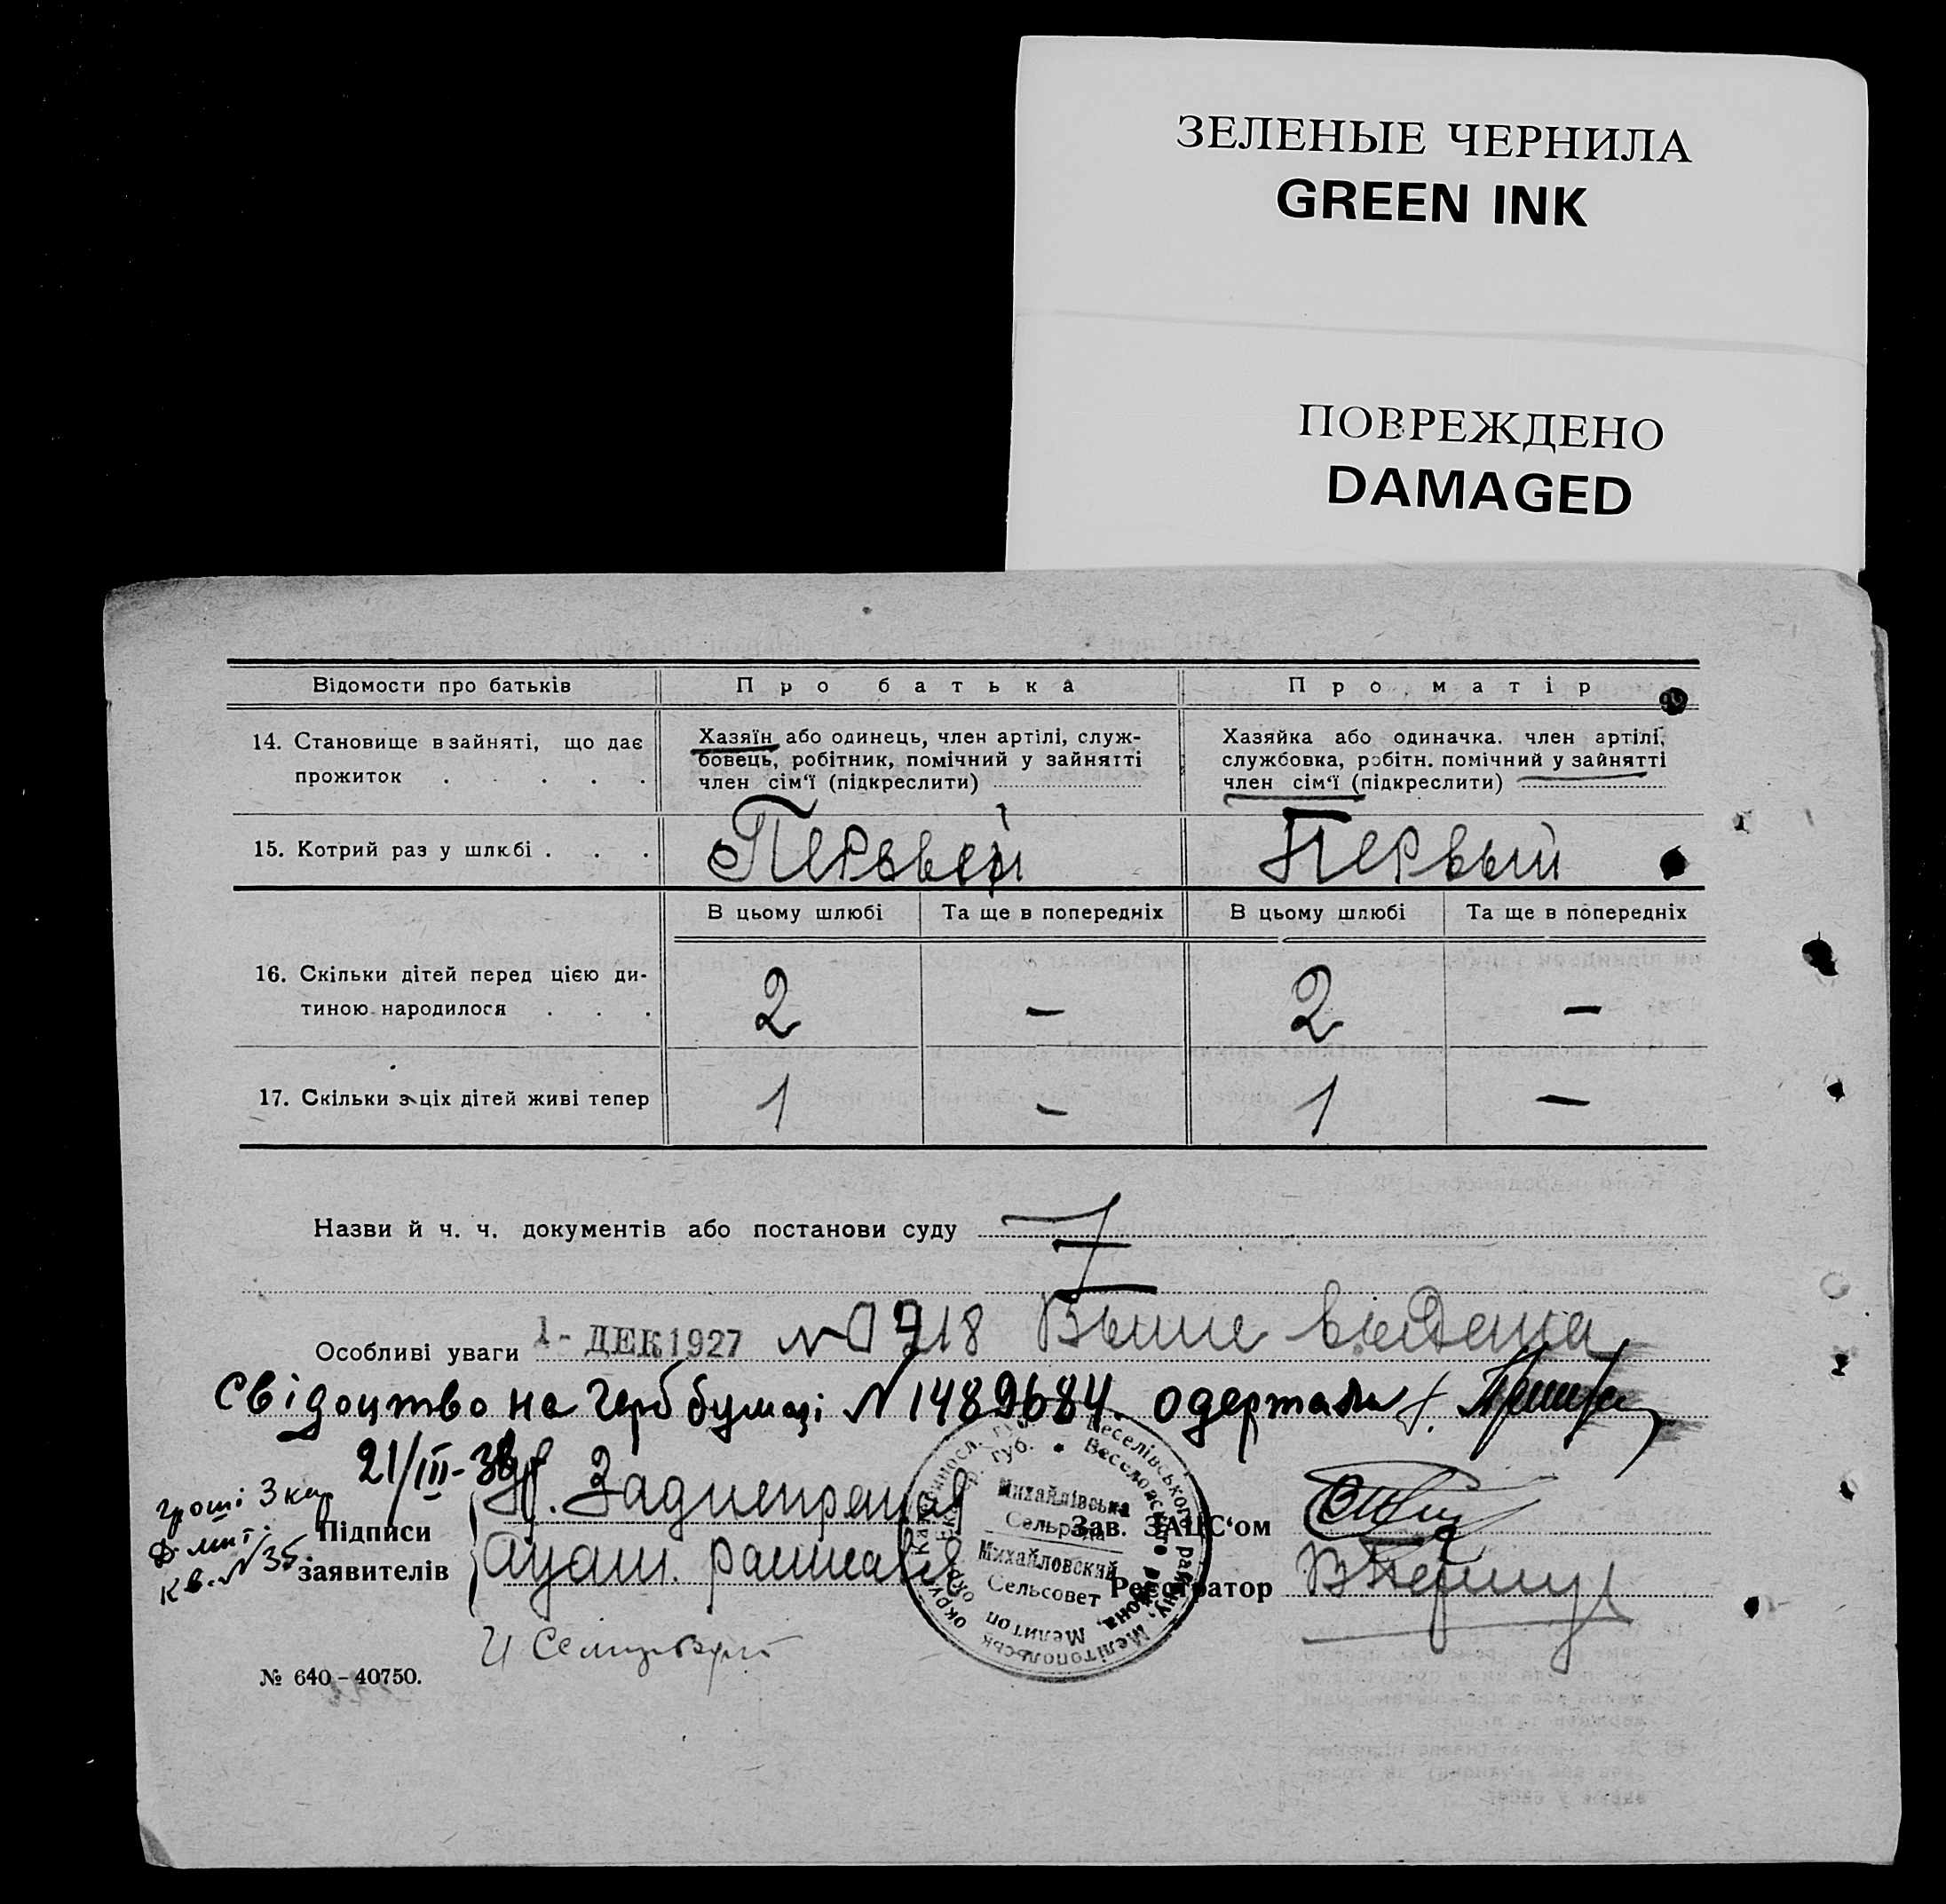 ЗЕЛЕНЫЕ ЧЕРНИЛА
GREEN INK
ПОВРЕЖДЕНО
DAMAGED
Відомости про батьків
Про батька
Про матір
14. Становище в зайняті, що дає
прожиток . . . . .
Хазяїн або одинець, член артілі, служ-
бовець, робітник, помічний у зайнятті
член сім‘ї (підкреслити)
Хазяйка або одиначка. член артілі,
службовка, робітн. помічний у зайнятті
член сім‘ї (підкреслити)
15. Котрий раз у шлюбі . . .
Первый
Первый
В цьому шлюбі
Та ще в попередніх
В цьому шлюбі
Та ще в попередніх
16. Скільки дітей перед цією ди-
тиною народилося . . .
2
–
2
–
17. Скільки з ціх дітей живі тепер
1
–
1
–
Назви й ч. ч. документів або постанови суду
Особливі уваги 1- ДЕК 1927 № 218
Свідоцтво на герб бумазі № 1489684. одержала
21/III-38
гроші 3 кар
кв. № 35
Підписи
заявителів
Михайлівська
Сельрада
Михайловский
Сельсовет
Веселівського району, Мелітопольськ
Веселовского района, Мелитоп
Зав. ЗАЦС‘ом
Реєстратор
№ 640–40750.